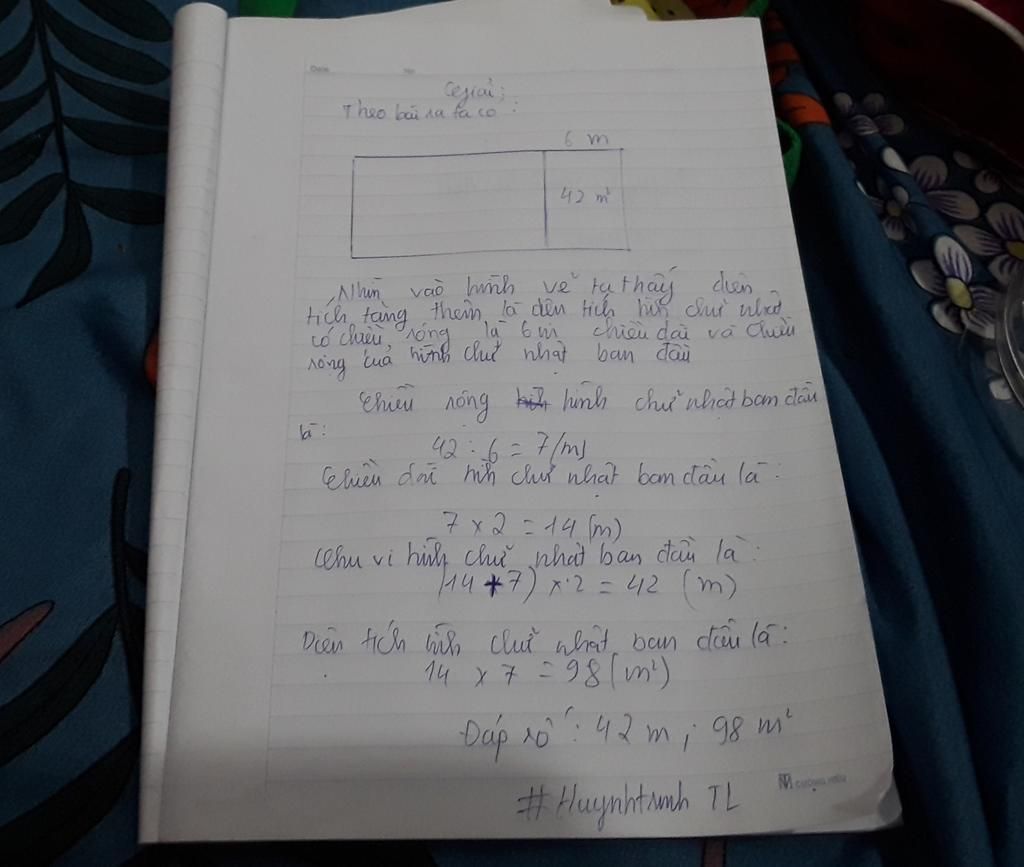 Giải:
Theo bài ra ta có:
6 m
42 m²
Nhìn vào hình vẽ ta thấy diện
tích tăng thêm là diện tích hìn chữ nhật
có chiều rông là 6 m chiều dài và chiều
rông của hình chữ nhật ban đầu
Chiều rông hình chữ nhật ban đầu
là:
42 : 6 = 7 (m)
Chiều dài hìn chữ nhật ban đầu là:
7 x 2 = 14 (m)
Chu vi hình chữ nhật ban đầu là:
(14 + 7) x 2 = 42 (m)
Diên tích hình chữ nhật ban đầu là:
14 x 7 = 98 (m²)
Đáp số: 42 m ; 98 m²
#Huynhtrinh TL